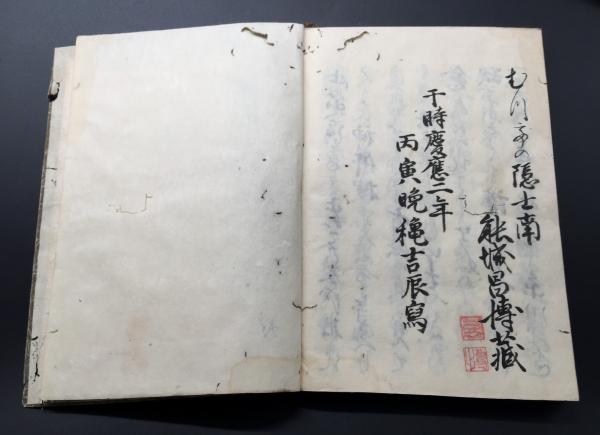 むつ の隠士南
能城昌博蔵
于時慶應二年
丙寅晩穐吉辰寫